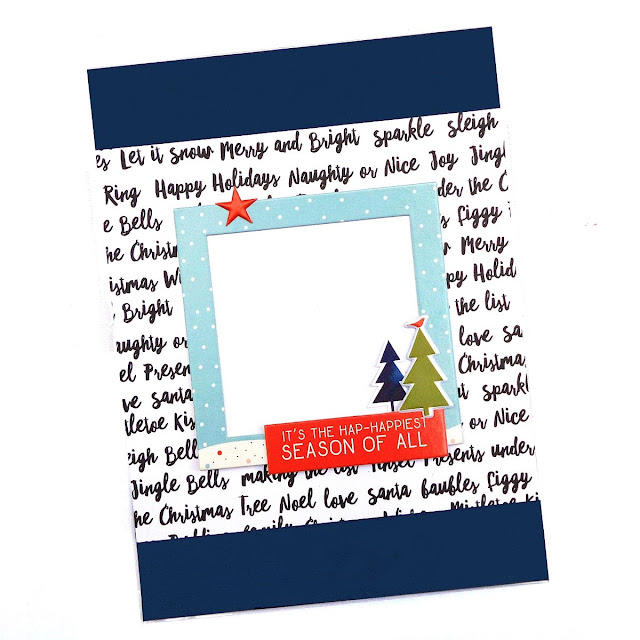 es Let it snow Merry and Bright sparkle sleigh
Ring Happy Holidays Naughty or Nice Joy Jingl
e Bells der the
he Christm s figgy
istmas Wi ow Merry
Bright py Holid
aughty or the list
el Presen love sa
ve santa Christmas
tletoe Kis t sparkl
eigh Bell or Nice
IT'S THE HAP-HAPPIEST
SEASON OF ALL
Jingle Bells making the list Tinsel Presents under
he Christmas Tree Noel love santa baubles figgy
Family Christmas Mistletoe Ki